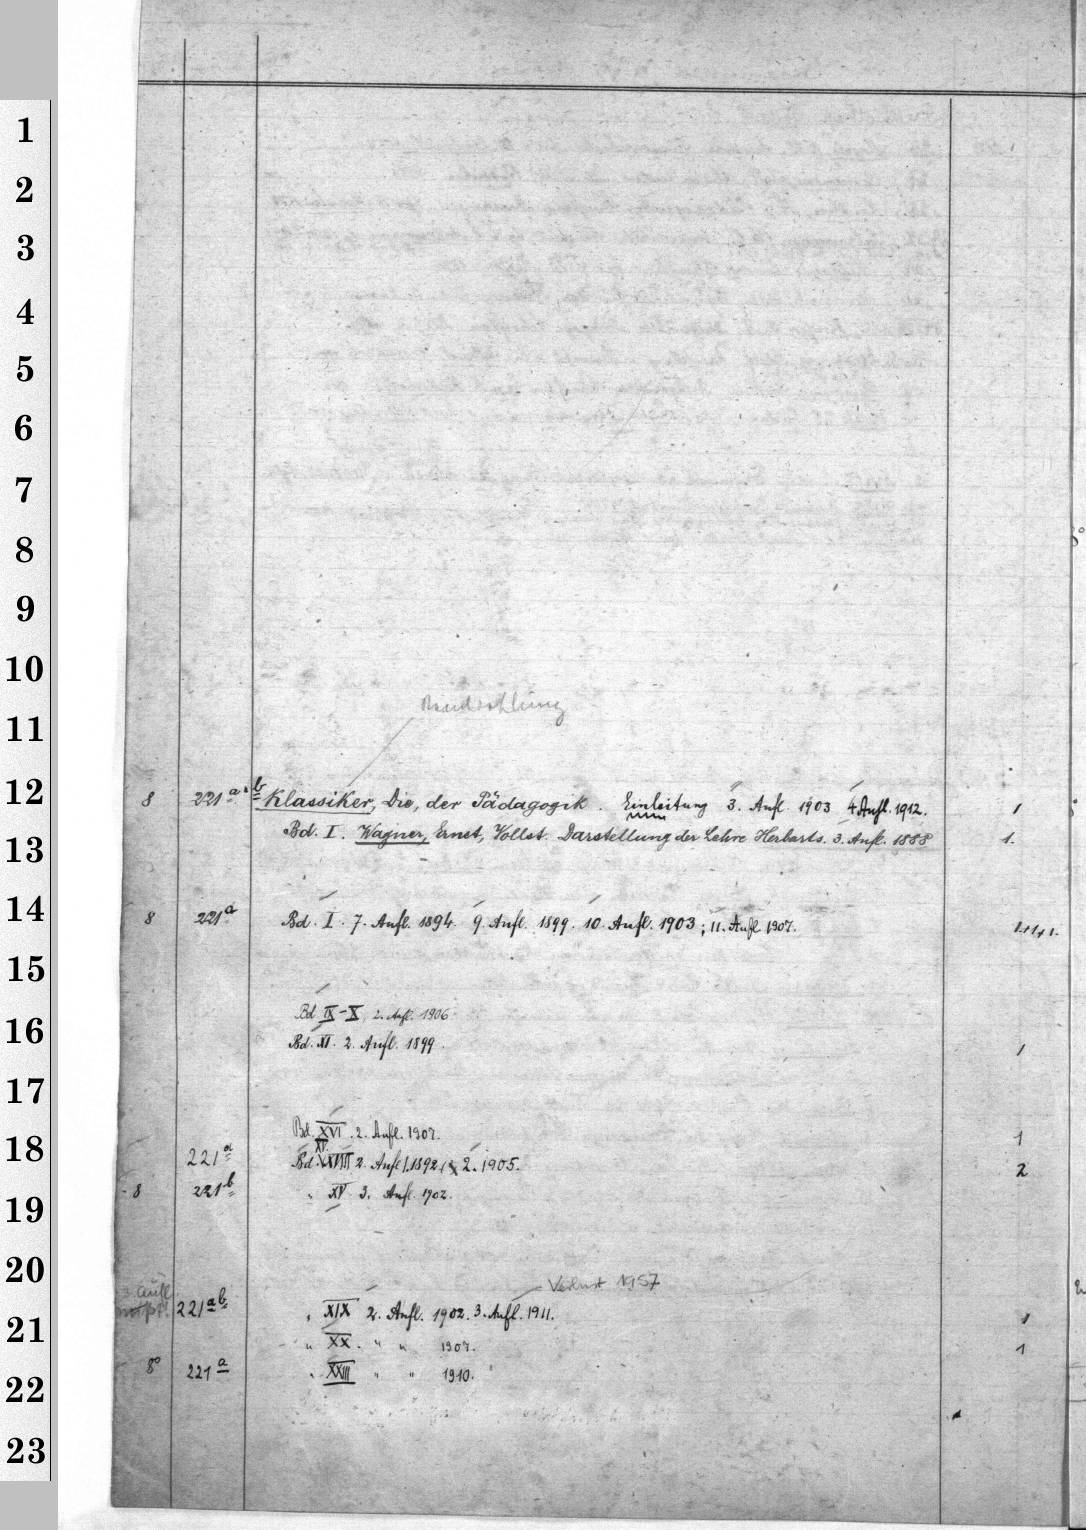 1
2
3
4
5
6
7
8
9
10
11
12
13
14
15
16
17
18
19
20
21
22
23
Bandzählung
8 221 a. b Klassiker, Die, der Pädagogik. Einleitung 3. Aufl. 1903 4 Aufl. 1912. 1
Bd. I. Wagner, Ernst, Vollst. Darstellung der Lehre Herbarts. 3. Aufl. 1888 1.
8 221 a Bd. I. 7. Aufl. 1894. 9. Aufl. 1899. 10. Aufl. 1903; 11. Aufl 1907. 1+1+1.
Bd IX-X, 2. Aufl. 1906
Bd. XI. 2. Aufl. 1899. 1
Bd. XVI. 2. Aufl. 1907. 1
221 a Bd. XVIII 2. Aufl. 1892, 2. 1905. 2
8 221 b " XV 3. Aufl. 1902.
Verlust 1957
3. Aufl. 221 a b " XIX 2. Aufl. 1902. 3. Aufl. 1911. 1
" XX. " " 1907. 1
8° 221 a " XXIII " " 1910.